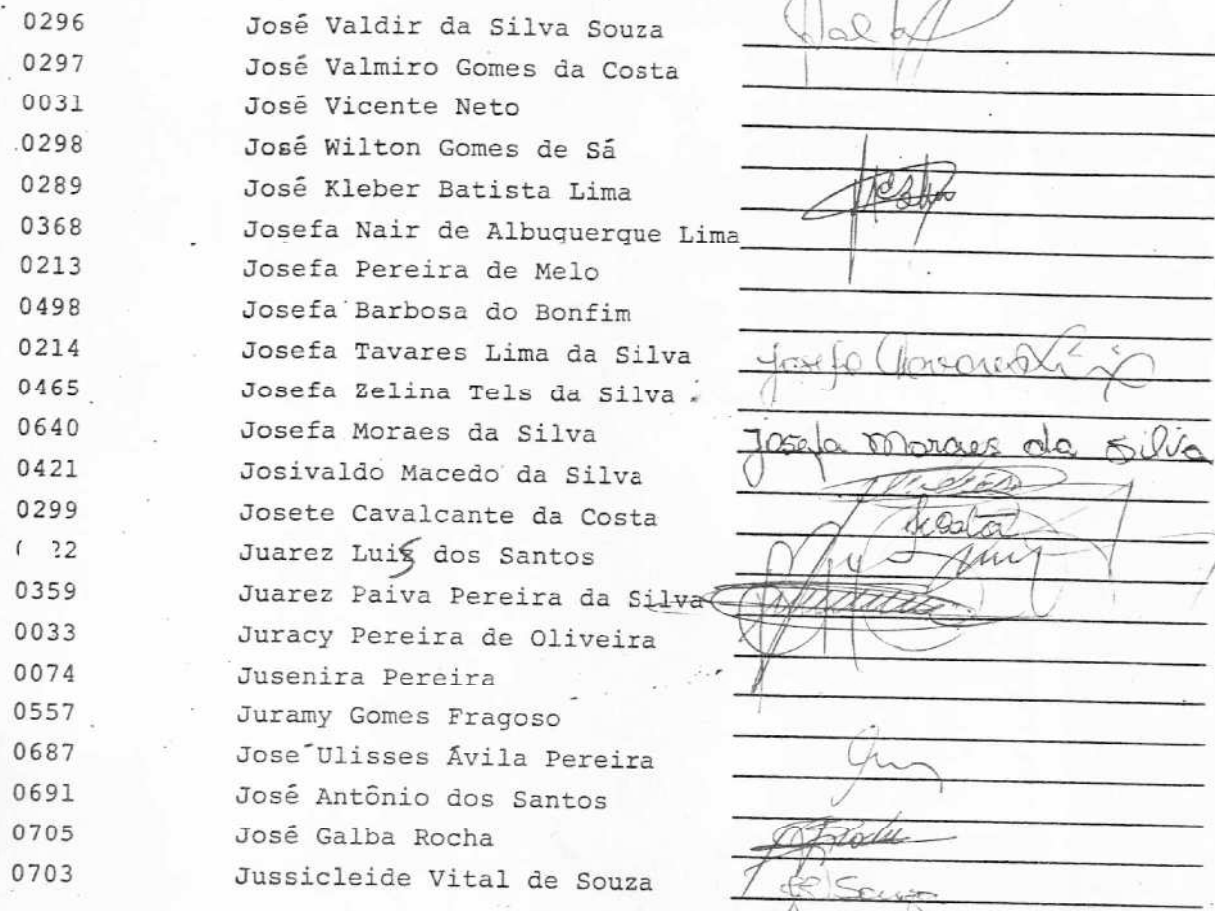 0296 José Valdir da Silva Souza
0297 José Valmiro Gomes da Costa
0031 José Vicente Neto
0298 José Wilton Gomes de Sá
0289 José Kleber Batista Lima
0368 Josefa Nair de Albuquerque Lima
0213 Josefa Pereira de Melo
0498 Josefa Barbosa do Bonfim
0214 Josefa Tavares Lima da Silva Josefa Tavares Lima
0465 Josefa Zelina Tels da Silva
0640 Josefa Moraes da Silva Josefa Moraes da Silva
0421 Josivaldo Macedo da Silva
0299 Josete Cavalcante da Costa Costa
22 Juarez Luis dos Santos
0359 Juarez Paiva Pereira da Silva
0033 Juracy Pereira de Oliveira
0074 Jusenira Pereira
0557 Juramy Gomes Fragoso
0687 José Ulisses Ávila Pereira
0691 José Antônio dos Santos
0705 José Galba Rocha
0703 Jussicleide Vital de Souza Souza